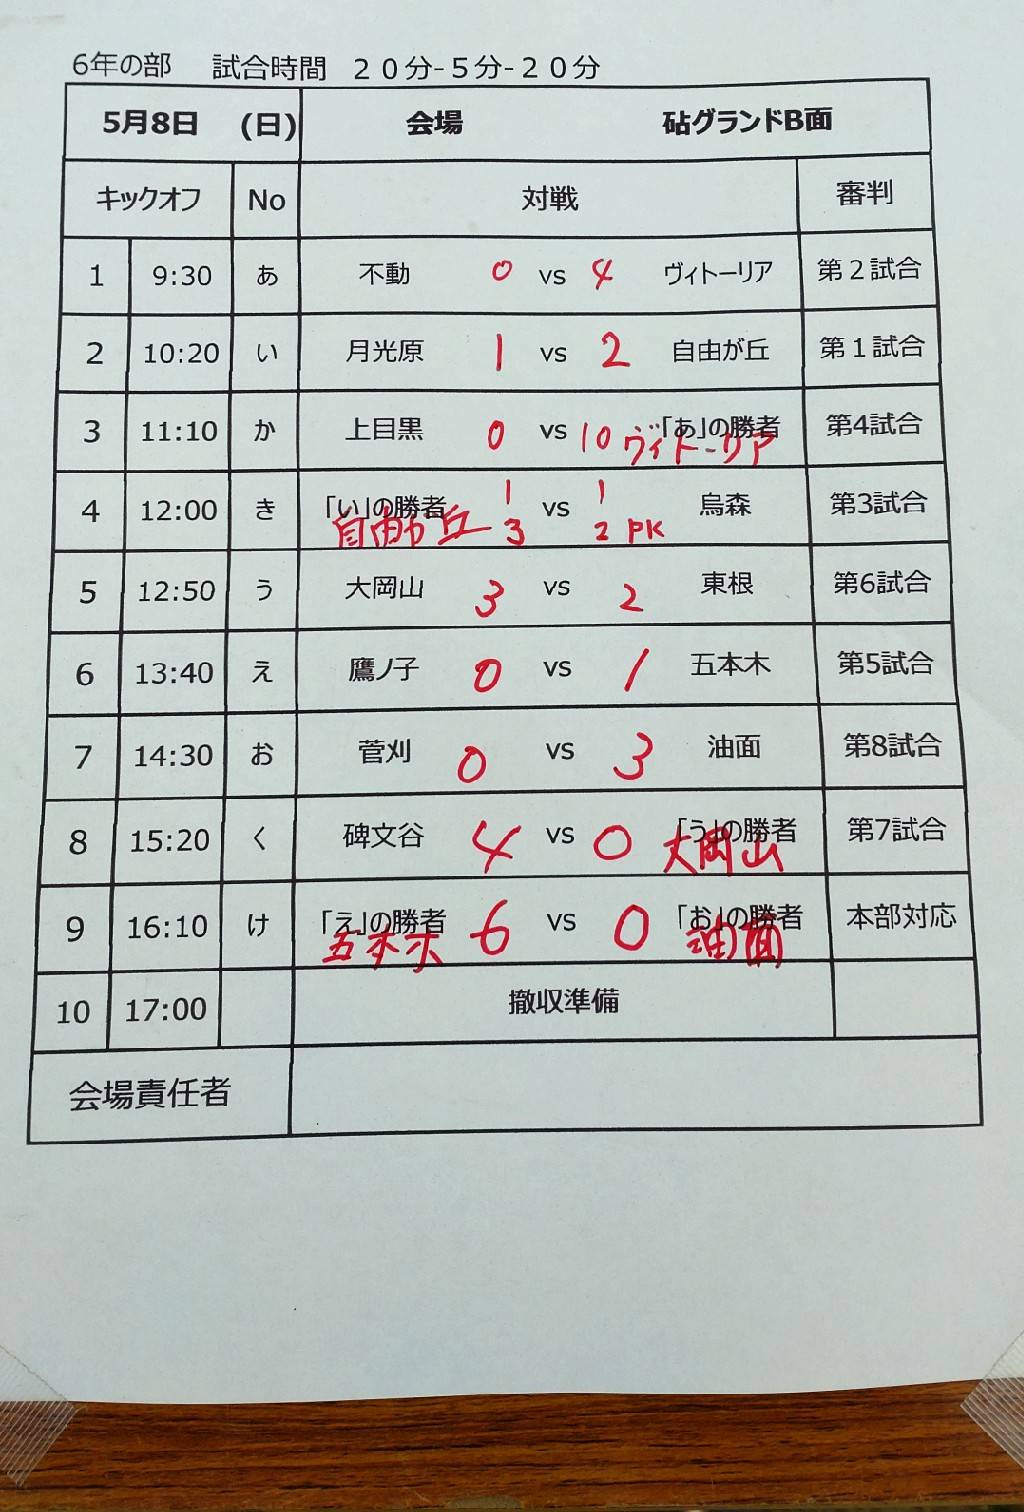 6年の部 試合時間 20分-5分-20分
5月8日 (日) 会場 砧グランドB面
キックオフ No 対戦 審判
1 9:30 あ 不動 0 vs 4 ヴィトーリア 第2試合
2 10:20 い 月光原 1 vs 2 自由が丘 第1試合
3 11:10 か 上目黒 0 vs 10 「あ」の勝者 第4試合
ヴィトーリア
4 12:00 き 「い」の勝者 1 vs 1 烏森 第3試合
自由が丘 3 2 PK
5 12:50 う 大岡山 3 vs 2 東根 第6試合
6 13:40 え 鷹ノ子 0 vs 1 五本木 第5試合
7 14:30 お 菅刈 0 vs 3 油面 第8試合
8 15:20 く 碑文谷 4 vs 0 「う」の勝者 第7試合
大岡山
9 16:10 け 「え」の勝者 6 vs 0 「お」の勝者 本部対応
五本木 油面
10 17:00 撤収準備
会場責任者